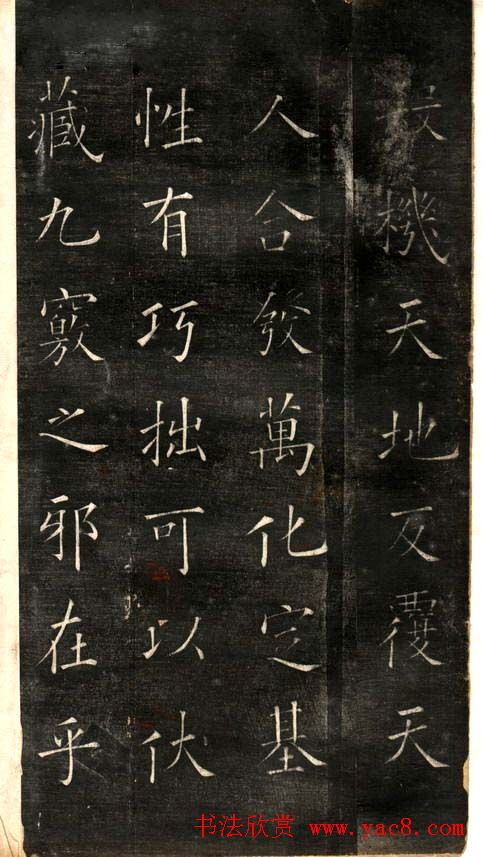 殺機天地反覆天
人合發萬化定基
性有巧拙可以伏
藏九竅之邪在乎
书法欣赏 www.yac8.com